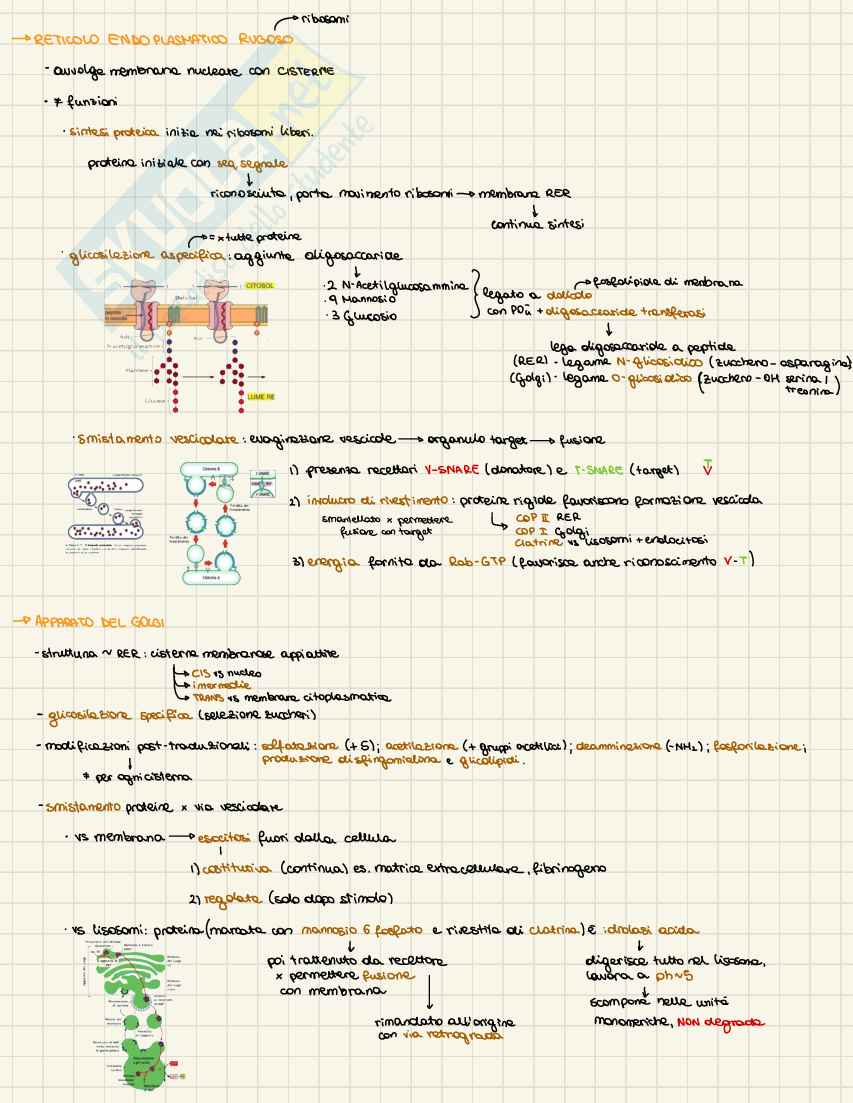 → ribosomi
→ RETICOLO ENDOPLASMATICO RUGOSO
- avvolge membrana nucleare con CISTERNE
- ≠ funzioni
· sintesi proteica inizia nei ribosomi liberi.
proteina iniziale con seq segnale
↓
riconosciuta, porta movimento ribosomi → membrana RER
↓
continua sintesi
→ = x tutte proteine
· glicosilazione aspecifica: aggiunta oligosaccaride
· 2 N-Acetilglucosammina
· 9 Mannosio
· 3 Glucosio
→ fosfolipide di membrana
legato a dolicolo
+ oligosaccaride transferasi
↓
lega oligosaccaride a peptide
(RER) - legame N-glicosidico (zucchero - asparagina)
(Golgi) - legame O-glicosidico (zucchero - OH serina /
treonina)
CITOSOL
LUME RE
· smistamento vescicolare: evaginazione vescicole → organulo target → fusione
1) presenza recettori V-SNARE (donatore) e T-SNARE (target)
T
V
2) involucro di rivestimento: proteine rigide favoriscono formazione vescicola
smantellato x permettere
fusione con target
COP II RER
COP I Golgi
Clatrine vs lisosomi + endocitosi
3) energia fornita da Rab-GTP (favorisce anche riconoscimento V-T)
→ APPARATO DEL GOLGI
- struttura ~ RER: cisterne membranose appiattite
→ CIS vs nucleo
→ intermedie
→ TRANS vs membrana citoplasmatica
- glicosilazione specifica (selezione zuccheri)
- modificazioni post-traduzionali: solfatazione (+S); acetilazione (+ gruppi acetilici); deamminazione (-NH₂); fosforilazione;
produzione di sfingomielina e glicolipidi.
↓
≠ per ogni cisterna
- smistamento proteine x via vescicolare
· vs membrana → esocitosi fuori dalla cellula
1) costitutiva (continua) es. matrice extracellulare, fibrinogeno
2) regolata (solo dopo stimolo)
· vs lisosomi: proteina (marcata con mannosio 6 fosfato e rivestita di clatrina) è idrolasi acida
poi trattenuto da recettore
x permettere fusione
con membrana
rimandato all'origine
con via retrograda
digerisce tutto nel lisosoma,
lavora a ph~5
scompone nelle unità
monomeriche, NON degrada